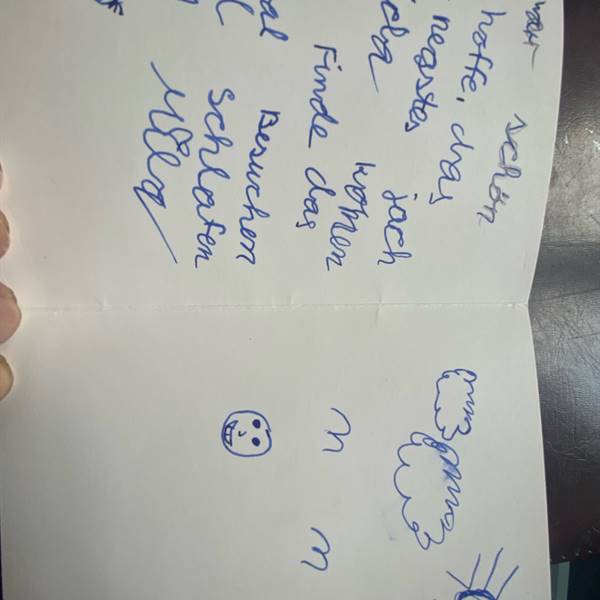 war schön
hoffe, das
negstes jach
komen
Finde das
Besuchen
Schlafen
Milla